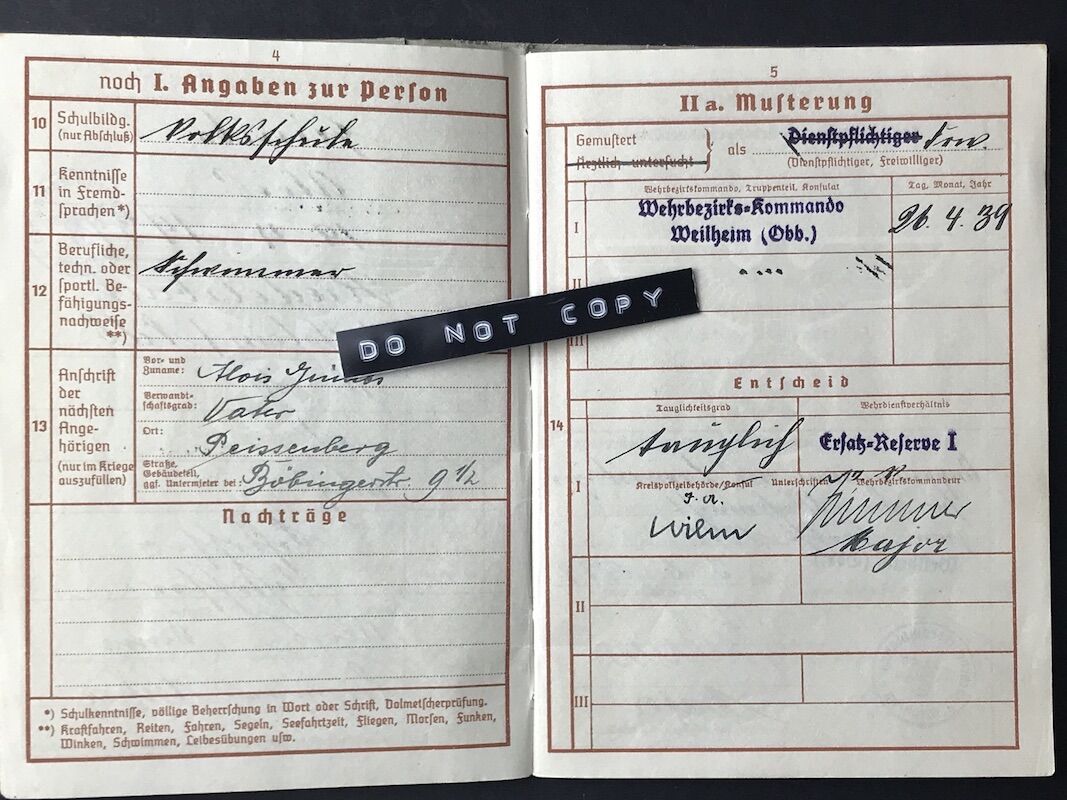 4
noch I. Angaben zur Person
10 Schulbildg. (nur Abschluß)
Volksschule
11 Kenntnisse in Fremdsprachen*)
12 Berufliche, techn. oder sportl. Befähigungsnachweise **)
Schwimmer
13 Anschrift der nächsten Angehörigen (nur im Kriege auszufüllen)
Vor- und Zuname: Alois
Verwandtschaftsgrad: Vater
Ort: Peissenberg
Straße, Gebäudeteil, ggf. Untermieter bei: Böbingerstr. 9 1/2
Nachträge
*) Schulkenntnisse, völlige Beherrschung in Wort oder Schrift, Dolmetscherprüfung.
**) Kraftfahren, Reiten, Fahren, Segeln, Seefahrtzeit, Fliegen, Morsen, Funken,
Winken, Schwimmen, Leibesübungen usw.
DO NOT COPY
5
IIa. Musterung
Gemustert
Ärztlich untersucht
als Dienstpflichtiger Frw.
(Dienstpflichtiger, Freiwilliger)
Wehrbezirkskommando, Truppenteil, Konsulat
Tag, Monat, Jahr
I
Wehrbezirks-Kommando
Weilheim (Obb.)
26. 4. 39
II
III
Entscheid
14
Tauglichkeitsgrad
Wehrdienstverhältnis
tauglich
Ersatz-Reserve I
I
Kreispolizeibehörde/Konsul
Unterschriften
Wehrbezirkskommandeur
I. A.
Major
II
III